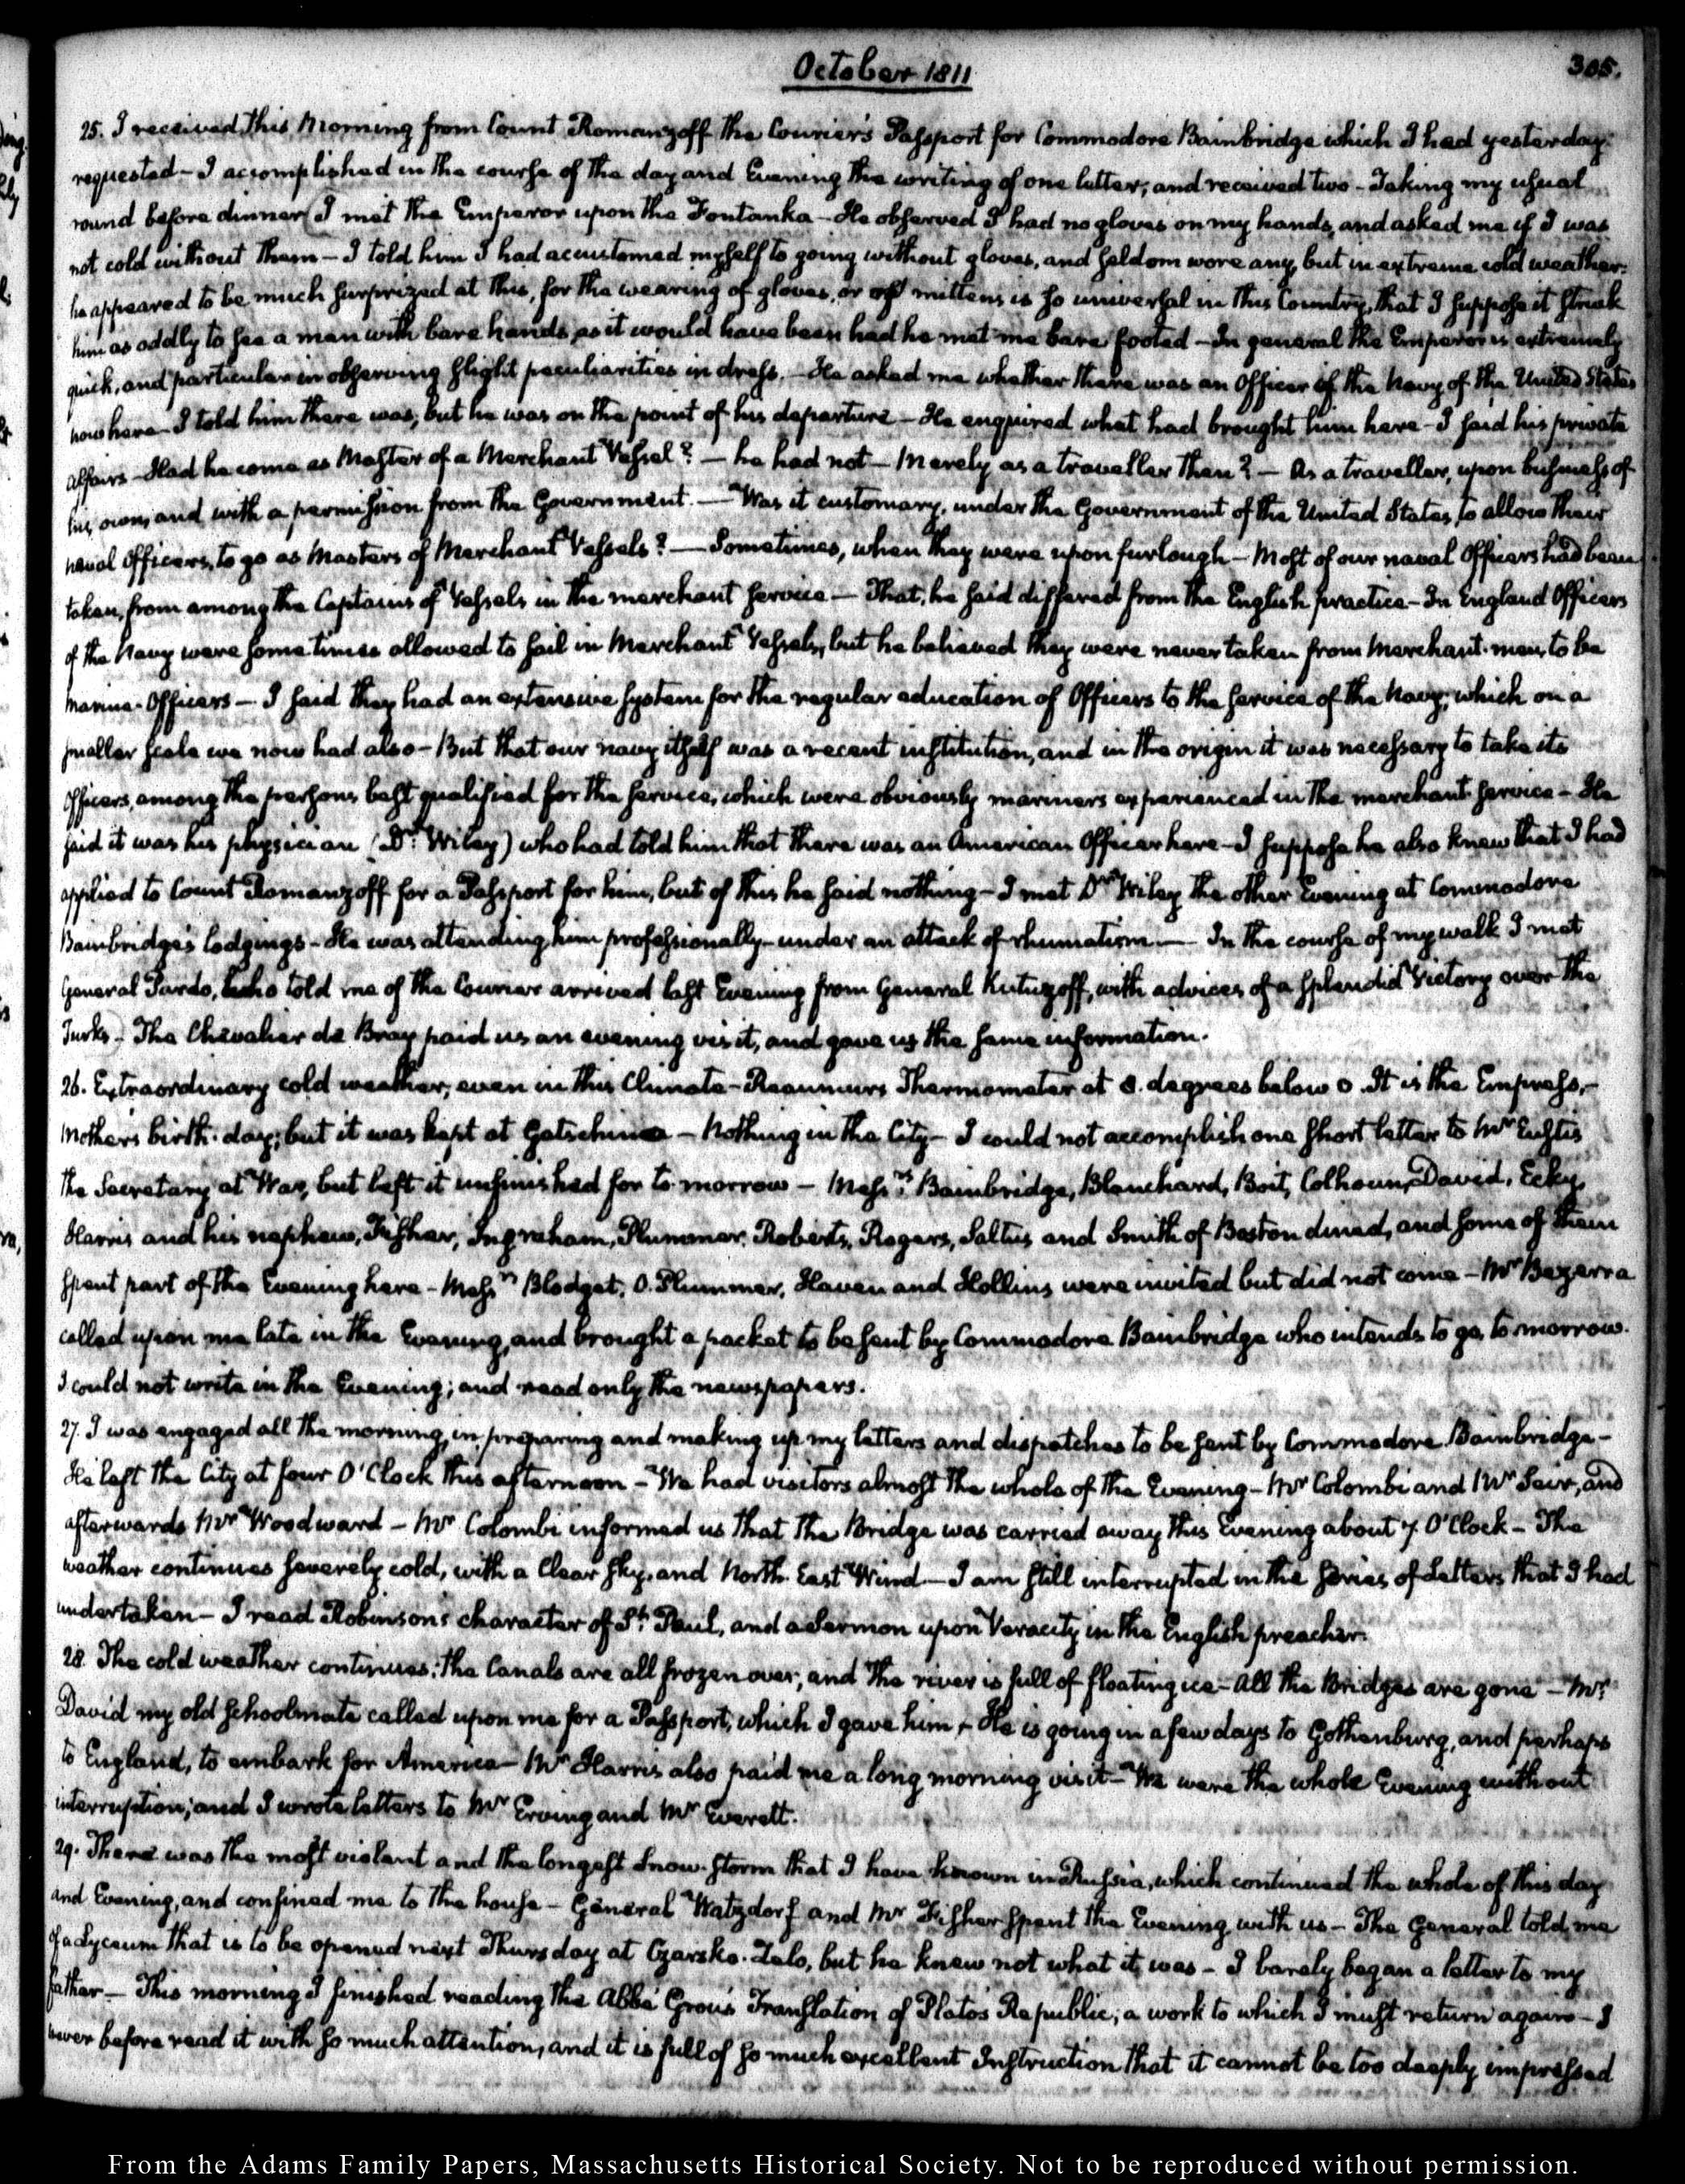 October 1811
305.
25. I received this Morning from Count Romanzoff the Courier's Passport for Commodore Bainbridge which I had yesterday
requested – I accomplished in the course of the day and Evening the writing of one letter, and received two – Taking my usual
round before dinner (I met the Emperor upon the Fontanka – He observed I had no gloves on my hands, and asked me if I was
not cold without them – I told him I had accustomed myself to going without gloves, and seldom wore any, but in extreme cold weather.
he appeared to be much surprized at this, for the wearing of gloves, or of mittens is so universal in this Country, that I suppose it struck
him as oddly to see a man with bare hands, as it would have been had he met me bare footed – In general the Emperor is extremely
quick, and particular in observing slight peculiarities in dress. – He asked me whether there was an Officer of the Navy of the United States
now here – I told him there was, but he was on the point of his departure – He enquired what had brought him here – I said his private
affairs – Had he come as Master of a Merchant Vessel? – he had not – Merely as a traveller then? – As a traveller, upon business of
his own, and with a permission from the Government. – Was it customary, under the Government of the United States, to allow their
naval Officers, to go as Masters of Merchant Vessels? – Sometimes, when they were upon furlough – Most of our naval Officers had been
taken, from among the Captains of Vessels in the merchant service – That, he said differed from the English practice – In England Officers
of the Navy were sometimes allowed to sail in Merchant Vessels, but he believed they were never taken from Merchant-men, to be
marine-Officers – I said they had an extensive system for the regular education of Officers to the service of the Navy; which on a
smaller scale we now had also – But that our navy itself was a recent institution, and in the origin it was necessary to take its
Officers, among the persons best qualified for the service, which were obviously mariners experienced in the merchant service – He
said it was his physician (Dr. Wiley) who had told him that there was an American Officer here – I suppose he also knew that I had
applied to Count Romanzoff for a Passport for him, but of this he said nothing – I met Dr. Wiley the other Evening at Commodore
Bainbridge's lodgings – He was attending him professionally – under an attack of rhumatism – In the course of my walk I met
General Pardo, who told me of the Courier arrived last Evening from General Kutuzoff, with advices of a splendid Victory over the
Turks) – The Chevalier de Bray paid us an evening visit, and gave us the same information.
26. Extraordinary cold weather, even in this Climate – Reaumurs Thermometer at 8. degrees below 0. It is the Empress,–
Mothers birth-day; but it was kept at Gatschina – Nothing in the City – I could not accomplish one short letter to Mr Eustis
the Secretary at War, but left it unfinished for to-morrow – Messrs. Bainbridge, Blanchard, Boit, Colhoun, David, Ecky,
Harris and his nephew, Fisher, Ingraham, Plummer, Roberts, Rogers, Saltus and Smith of Boston dined, and some of them
spent part of the Evening here – Messrs Blodget, O. Plummer, Haven and Hollins were invited but did not come – Mr Bezerra
called upon me late in the Evening, and brought a packet to be sent by Commodore Bainbridge who intends to go, to-morrow.
I could not write in the Evening; and read only the newspapers.
27. I was engaged all the morning, in preparing and making up my letters and dispatches to be sent by Commodore Bainbridge –
He left the City at four O'Clock this afternoon – We had visitors almost the whole of the Evening – Mr Colombi and Mr and
afterwards Mr Woodward – Mr Colombi informed us that the Bridge was carried away this Evening about 7 O'Clock – The
weather continues severely cold, with a Clear sky, and North-East Wind – I am still interrupted in the series of letters that I had
undertaken – I read Robinson's character of St. Paul, and a Sermon upon Veracity in the English preacher.
28. The cold weather continues; the Canals are all frozen over; and the river is full of floating ice – All the Bridges are gone – Mr.
David my old schoolmate called upon me for a Passport, which I gave him – He is going in a few days to Gothenburg, and perhaps
to England, to embark for America – Mr Harris also paid me a long morning visit – We were the whole Evening without
interruption; and I wrote letters to Mr Erving and Mr Everett.
29. There was the most violent and the longest Snow-storm that I have known in Russia, which continued the whole of this day
and Evening, and confined me to the house – General Watzdorf and Mr Fisher spent the Evening with us – The General told me
of a Lyceum that is to be opened next Thursday at Czarsko-Zelo, but he knew not what it was – I barely began a letter to my
father – This morning I finished reading the Abbé Grou's Translation of Plato's Republic; a work to which I must return again – I
never before read it with so much attention, and it is full of so much excellent Instruction that it cannot be too deeply impressed
From the Adams Family Papers, Massachusetts Historical Society. Not to be reproduced without permission.